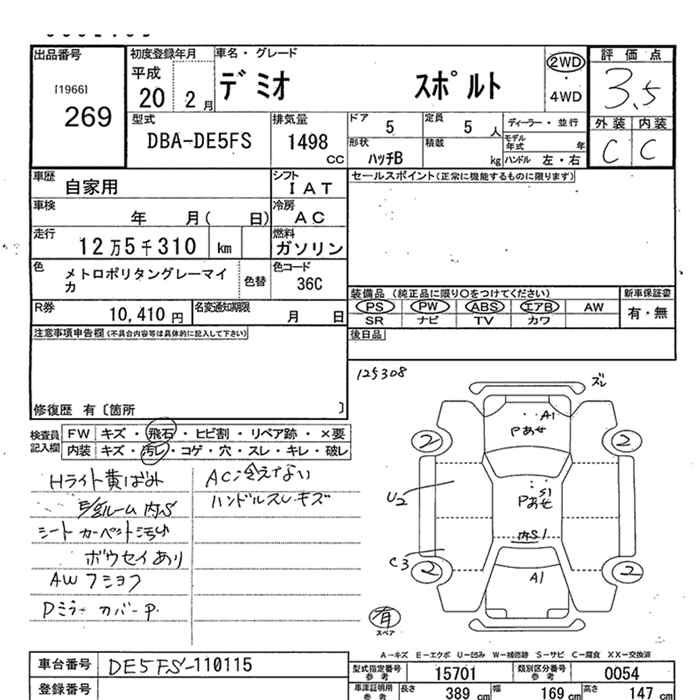 出品番号
[1966]
269
初度登録年月
平成
20 2月
車名・グレード
デミオ スポルト
2WD
・
4WD
評価点
3.5
外装 内装
C C
型式
DBA-DE5FS
排気量
1498
CC
ドア 5
定員 5 人
ディーラー・並行
形状
ハッチB
積載
kg
モデル年式 年
ハンドル 左・右
車歴
自家用
シフト
IAT
セールスポイント(正常に機能するものに限ります)
車検
年 月( 日)
冷房
AC
走行
12万5千310 km
燃料
ガソリン
色
メトロポリタングレーマイカ
色替
色コード
36C
装備品 (純正品に限り○をつけてください)
新車保証書
PS PW ABS エアB AW
有・無
SR ナビ TV カワ
R券
10,410円
名変通知期限
月 日
後日品
注意事項申告欄(不具合内容等は具体的に記入して下さい)
修復歴 有〔箇所 〕
検査員記入欄
FW キズ・飛石・ヒビ割・リペア跡・×要
内装 キズ・汚レ・コゲ・穴・スレ・キレ・破レ
Hライト黄ばみ
AC冷えない
ルーム内S
ハンドルスレキズ
シートカーペット汚れ
ボウセイあり
AWフショク
Dミラーカバー P
125308
ズレ
A1
Pあせ
2
2
U2
S1
Pあせ
内S1
C3
2
2
A1
有
スペア
A-キズ E-エクボ U-凹み W-補修跡 S-サビ C-腐食 XX-交換済
車台番号
DE5FS-110115
型式指定番号
参考
15701
類別区分番号
参考
0054
登録番号
車庫証明用
参考
長さ 389 cm
幅 169 cm
高さ 147 cm